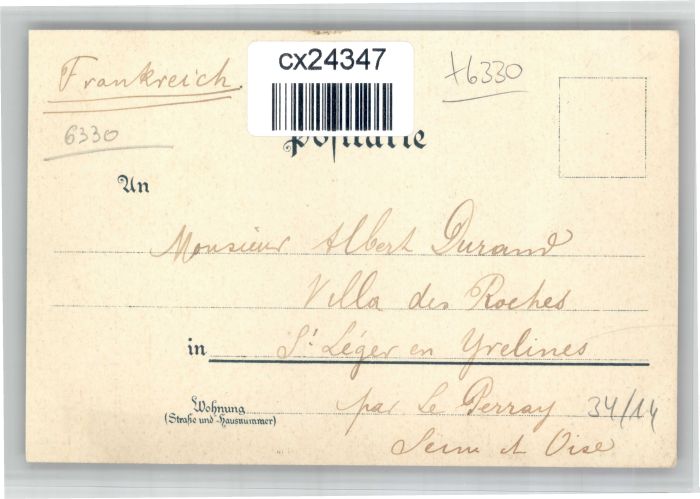 Frankreich
cx24347
+6330
6330
Postkarte
An
Monsieur Albert Durand
Villa des Roches
in St Léger en Yvelines
Wohnung
(Straße und Hausnummer)
par Le Perray 34/14
Seine et Oise